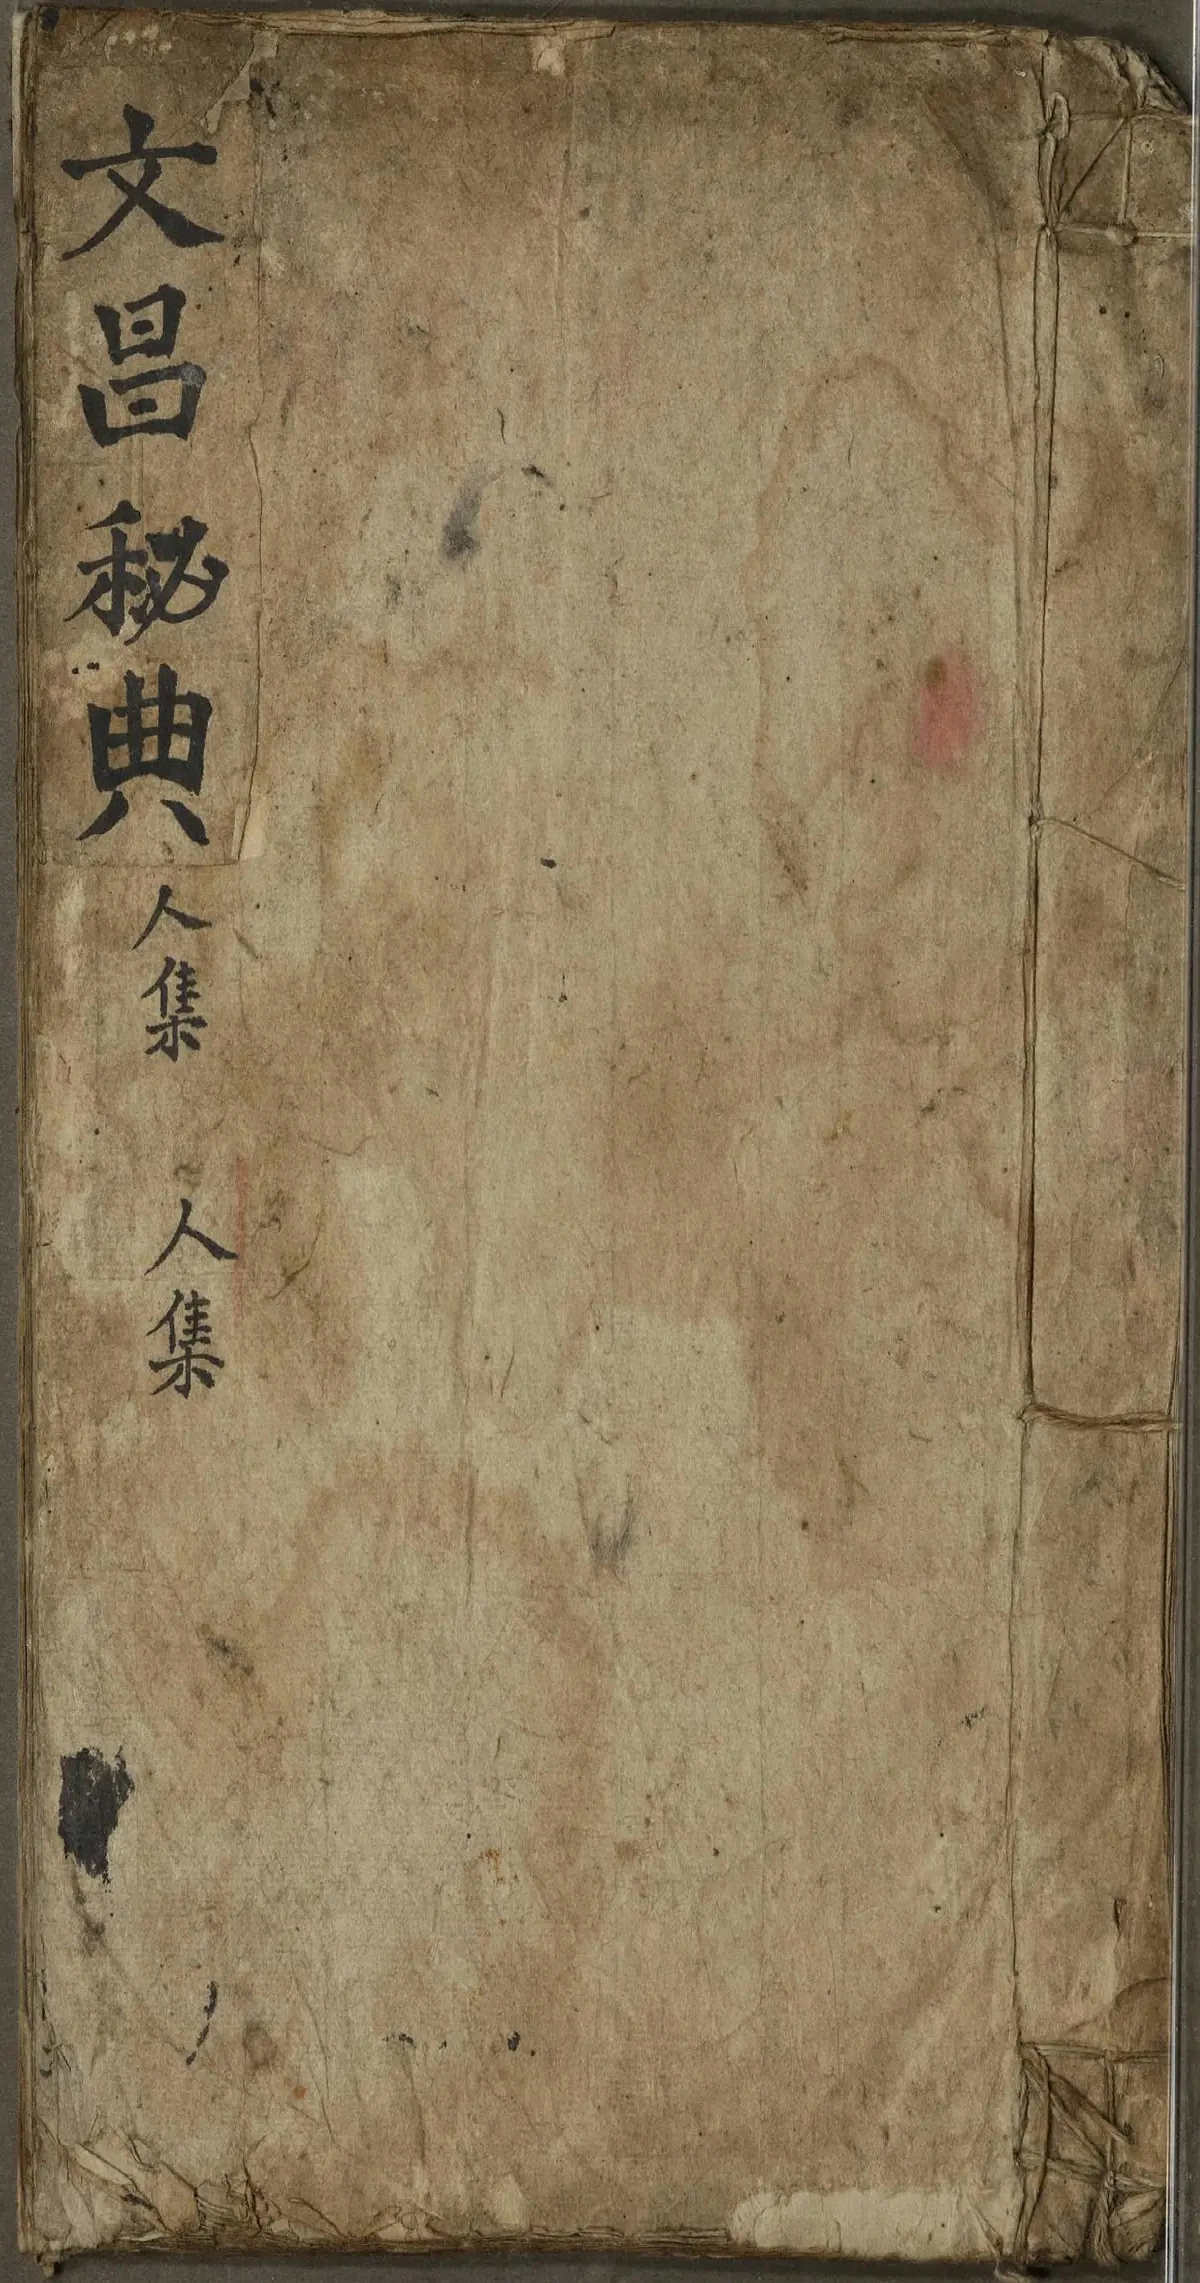 文昌秘典人集
人集